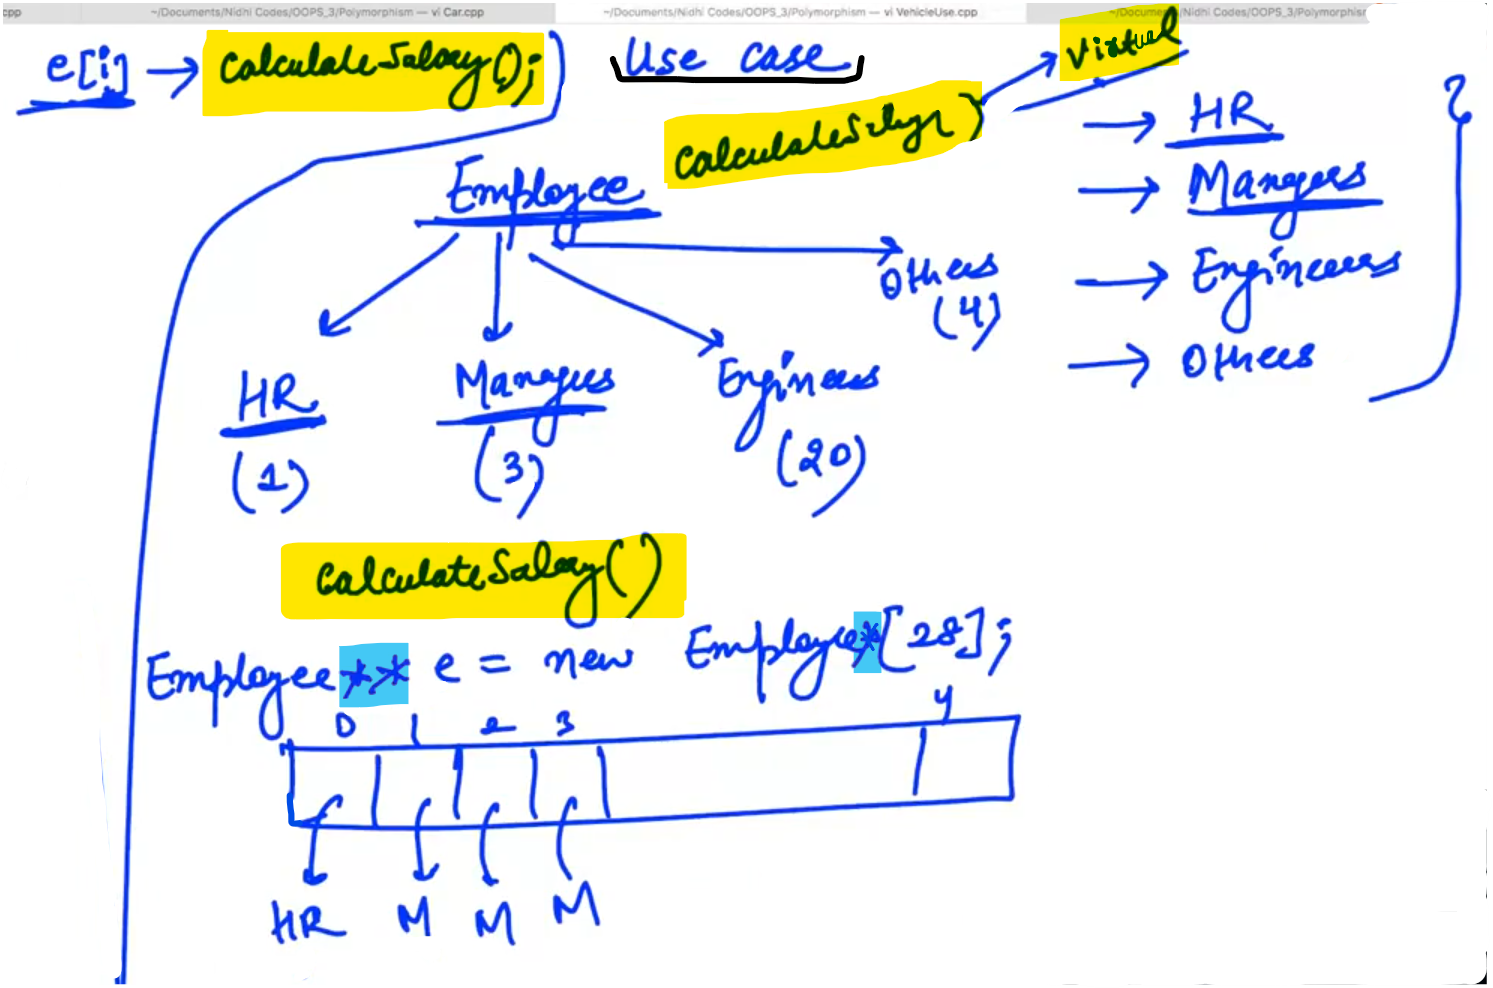 cpp
~/Documents/Nidhi Codes/OOPS_3/Polymorphism — vi Car.cpp
~/Documents/Nidhi Codes/OOPS_3/Polymorphism — vi VehicleUse.cpp
~/Documents/Nidhi Codes/OOPS_3/Polymorphis
e[i] → CalculateSalary();
Use case
Virtual
CalculateSalary
Employee
→ HR
→ Mangers
→ Engineers
→ Others
Others
(4)
HR
(1)
Managers
(3)
Engineers
(20)
CalculateSalary()
Employee** e = new Employee*[28];
0 1 2 3 4
HR M M M